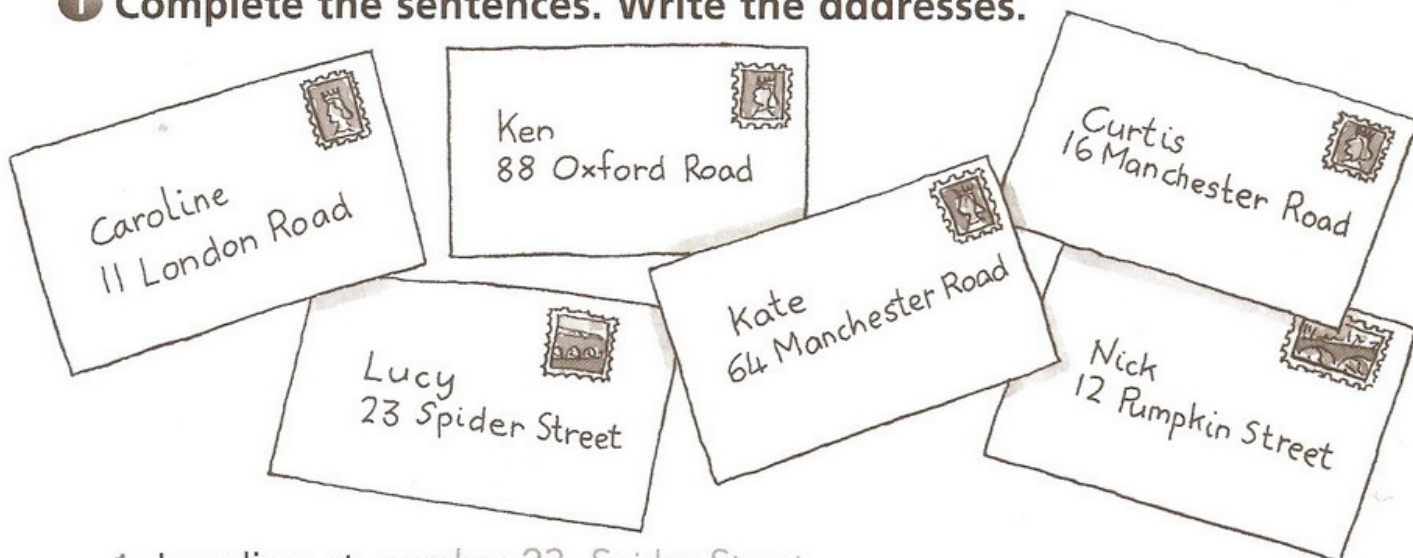 1 Complete the sentences. Write the addresses.
Caroline
11 London Road
Ken
88 Oxford Road
Curtis
16 Manchester Road
Lucy
23 Spider Street
Kate
64 Manchester Road
Nick
12 Pumpkin Street
1 Lucy lives at number 23, Spider Street